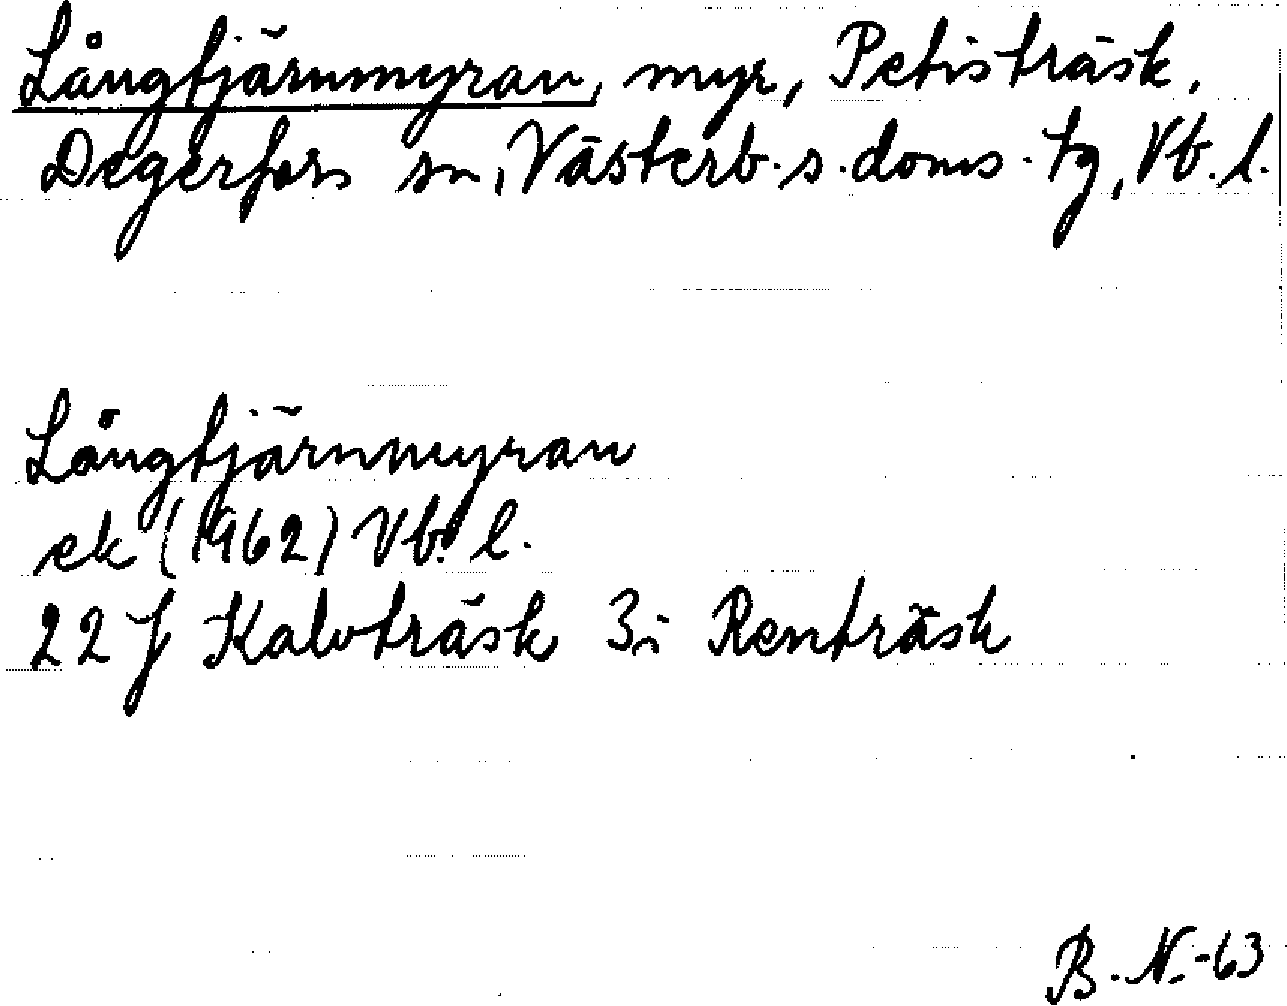 Långtjärnmyran, myr, Petisträsk,
Degerfors sn, Västerb. s. doms. tg, Vb. l.
Långtjärnmyran
ek (1962) Vb. l.
22 J Kalvträsk 3 i Renträsk
B. N. -63